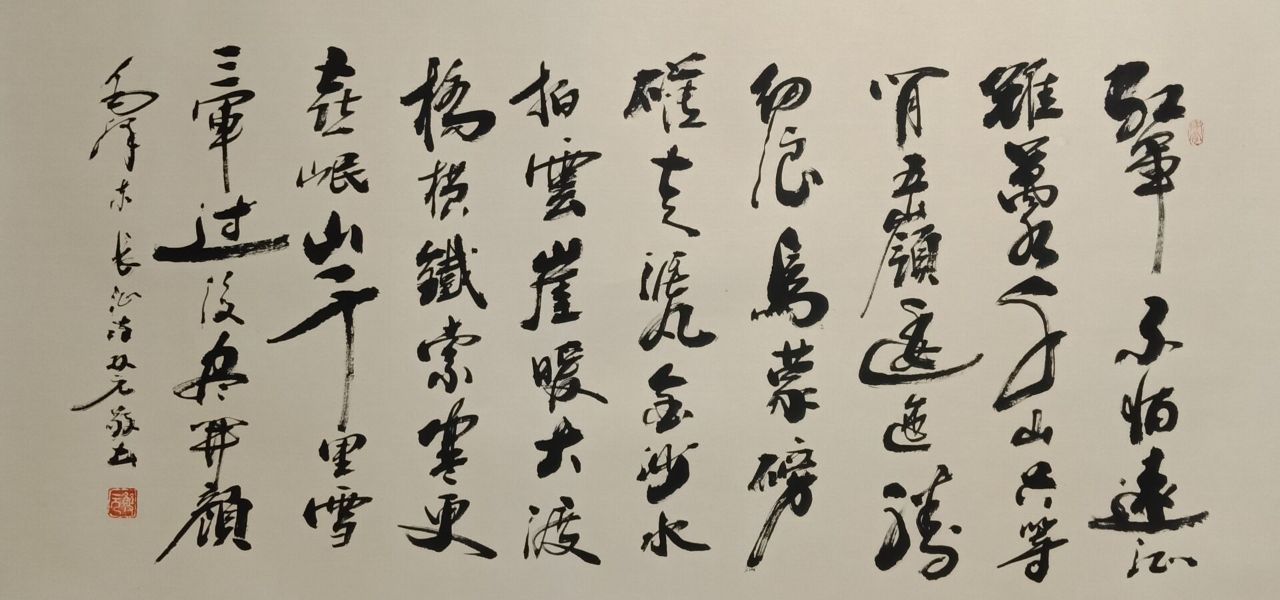 紅軍不怕遠征
難萬水千山只等
閒五嶺逶迤騰
細浪烏蒙磅
礴走泥丸金沙水
拍雲崖暖大渡
橋橫鐵索寒更
喜岷山千里雪
三軍过後盡開顏
毛澤东長征诗敬书